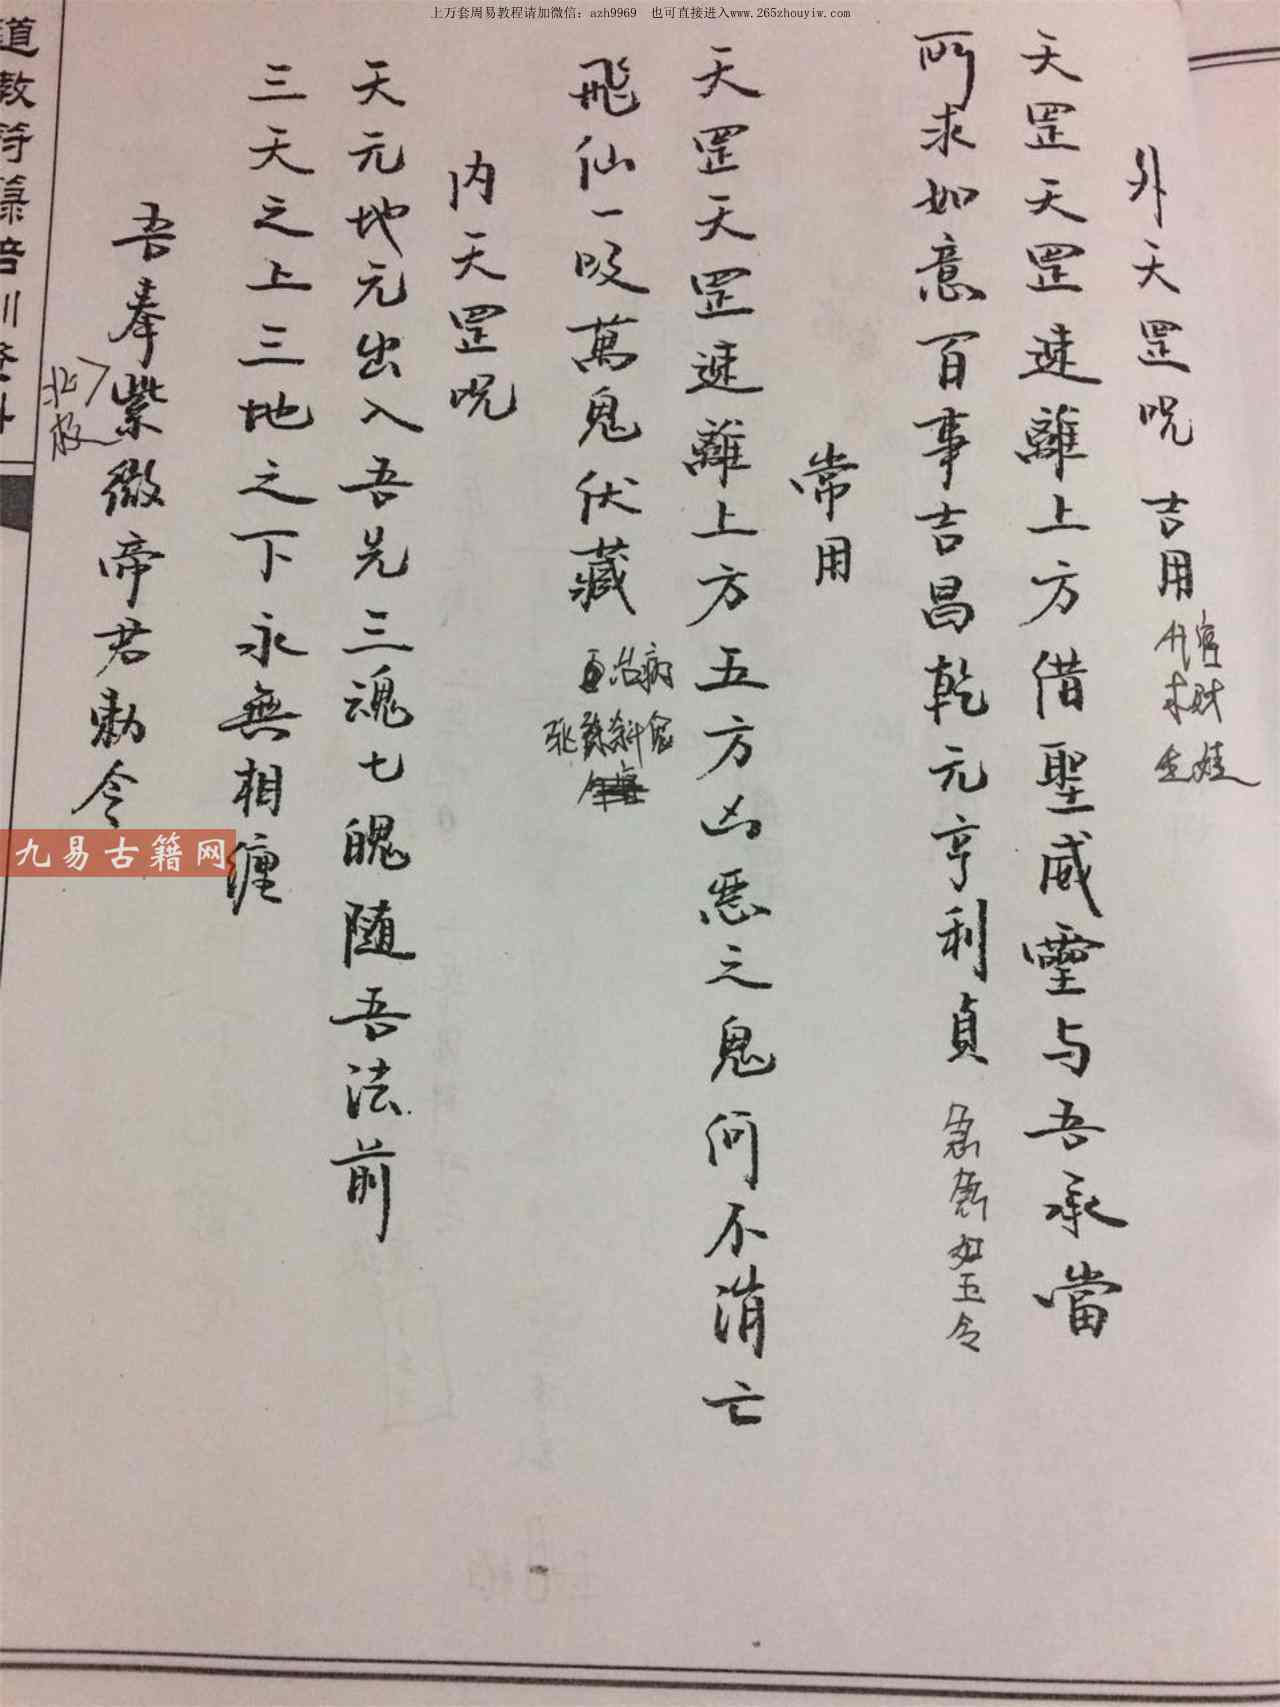 上万套周易教程请加微信：azh9969　也可直接进入www.265zhouyiw.com
外天罡呪 吉用
求财
生娃
天罡天罡速離上方借聖威靈与吾承當
所求如意百事吉昌乾元亨利貞 急急如玉令
常用
天罡天罡速離上方五方凶惡之鬼何不消亡
飛仙一吸萬鬼伏藏
治病
内天罡呪
天元地元出入吾先三魂七魄随吾法前
三天之上三地之下永無相纏
吾奉紫微帝君勅令
北极
道教符箓培训
九易古籍网